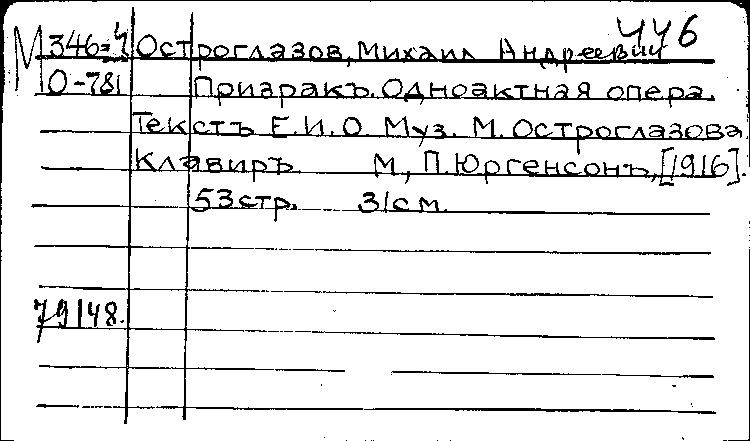 446
М 346=4 Остроглазов, Михаил Андреевич
О-781 Призракъ. Одноактная опера.
Текстъ Е.И.О. Муз. М. Остроглазова.
Клавиръ. М., П. Юргенсонъ, [1916].
53 стр. 31 см.
79148.